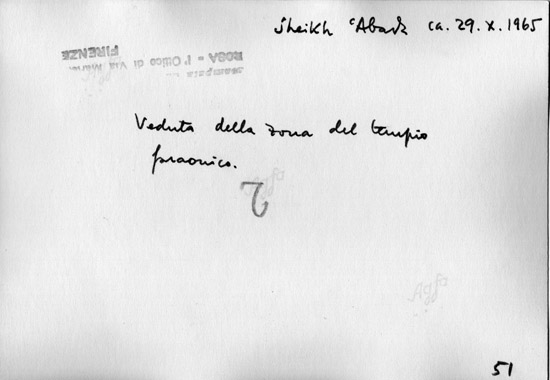 Sheikh ʿAbada ca. 29.X.1965
ROSA - l'Ottico di Via
FIRENZE
Veduta della zona del tempio
faraonico.
Agfa
Agfa
51